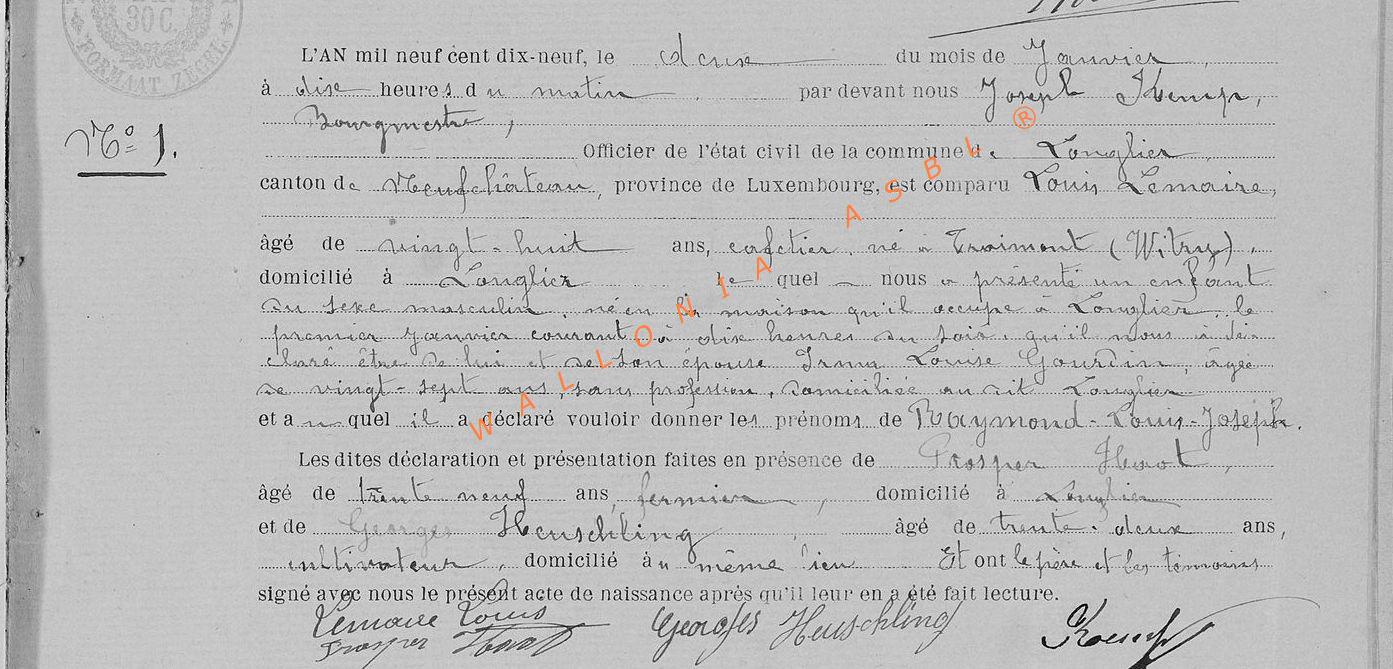 30 C.
FORMAAT ZEGEL
L'AN mil neuf cent dix-neuf, le deux du mois de Janvier,
à dix heures du matin par devant nous Joseph Kemp,
Bourgmestre,
No 1.
Officier de l'état civil de la commune de Longlier,
canton de Neufchâteau, province de Luxembourg, est comparu Louis Lemaire,
âgé de vingt-huit ans, cafetier, né à Traimont (Witry),
domicilié à Longlier lequel nous a présenté un enfant
du sexe masculin, né en la maison qu'il occupe à Longlier, le
premier Janvier courant à dix heures du soir, qu'il nous a dé-
claré être de lui et de son épouse Irma Louise Gourdin, âgée
de vingt-sept ans, sans profession, domiciliée au dit Longlier
et auquel il a déclaré vouloir donner les prénoms de Raymond-Louis-Joseph.
Les dites déclaration et présentation faites en présence de Prosper
âgé de trente neuf ans, fermier, domicilié à Longlier
et de Georges Heuschling âgé de trente-deux ans,
cultivateur, domicilié au même lieu Et ont le père et les témoins
signé avec nous le présent acte de naissance après qu'il leur en a été fait lecture.
Lemaire Louis Georges Heuschling Kemp
Prosper
WALLONIA ASBL ®